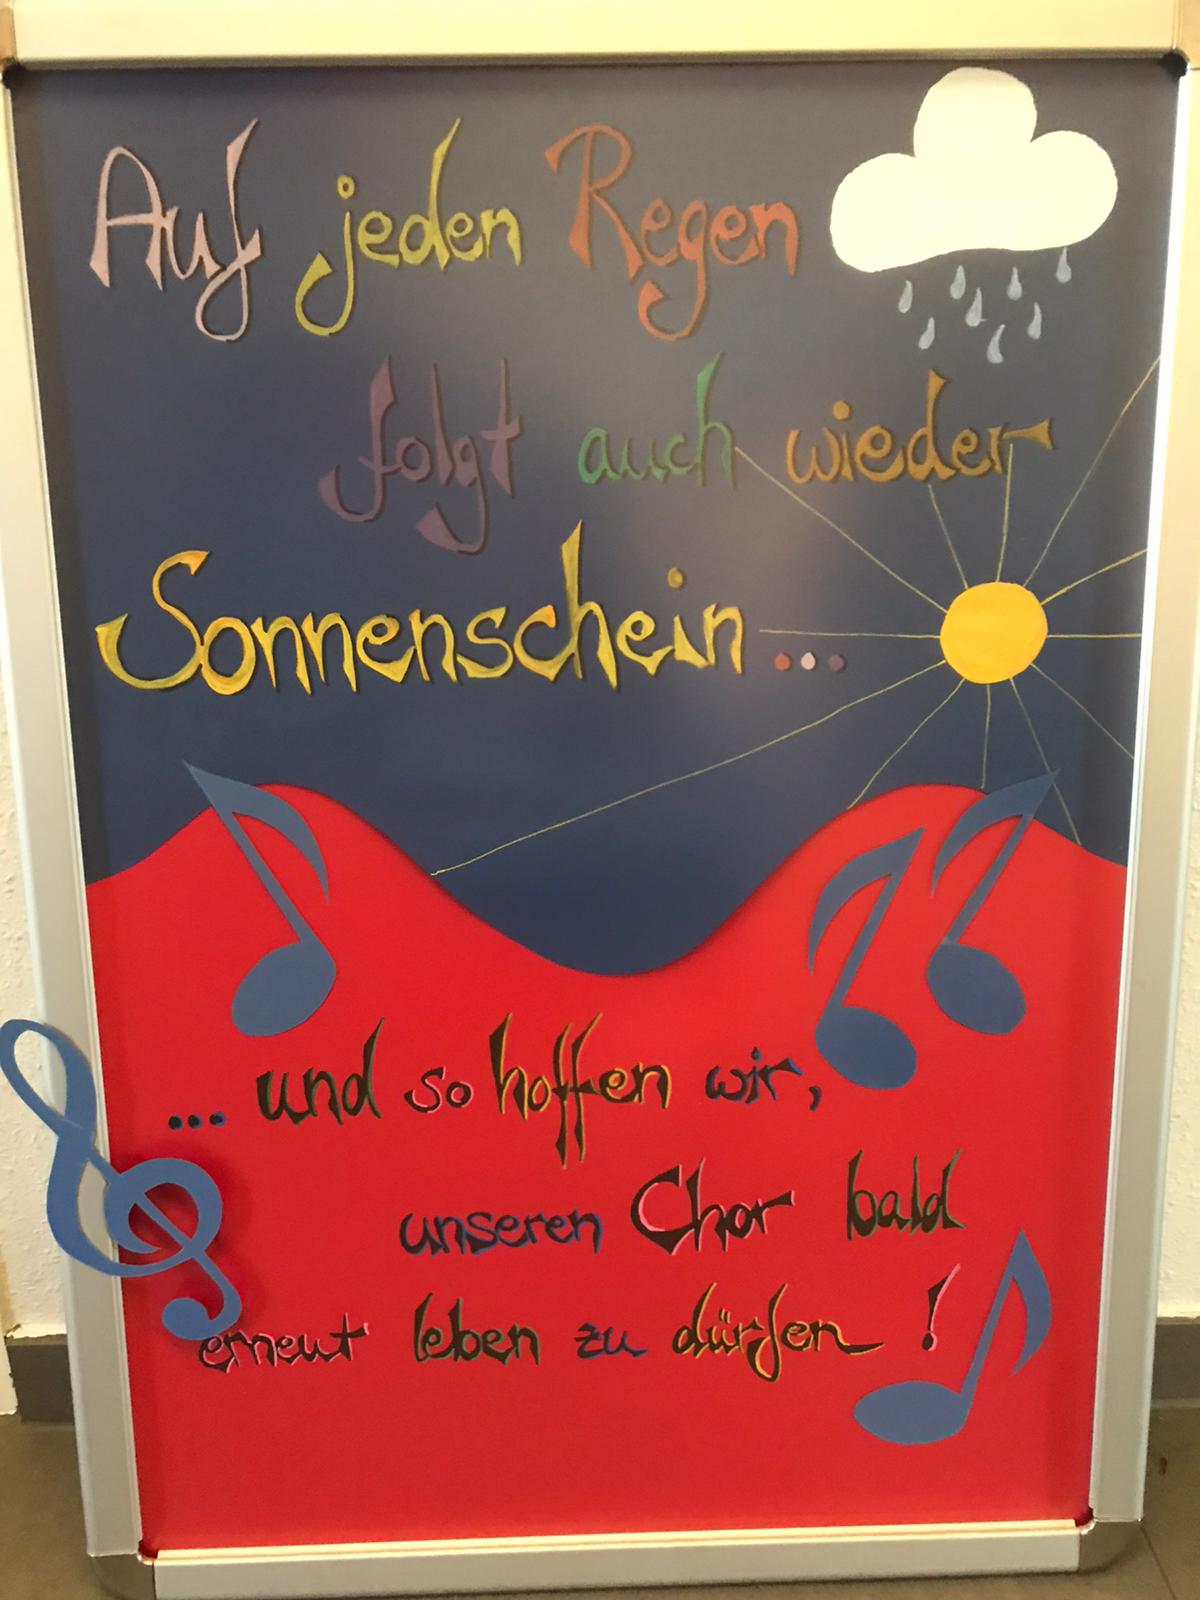 Auf jeden Regen
folgt auch wieder
Sonnenschein...
... und so hoffen wir,
unseren Chor bald
erneut leben zu dürfen !